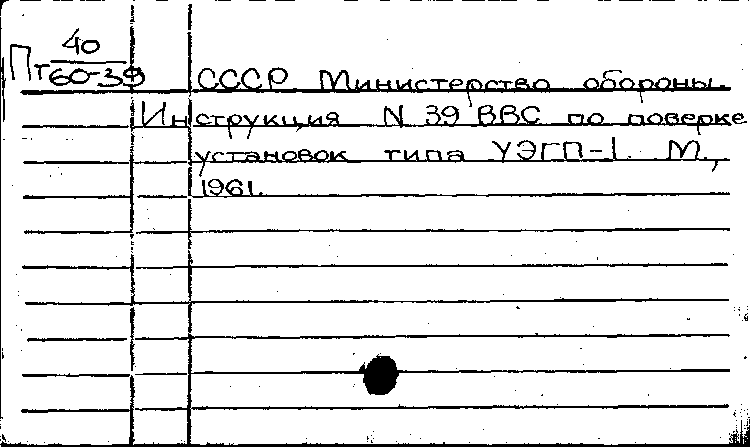 40
Пт 60-39
СССР Министерство обороны.
Инструкция N 39 ВВС по поверке
установок типа УЭГП-1. М.,
1961.